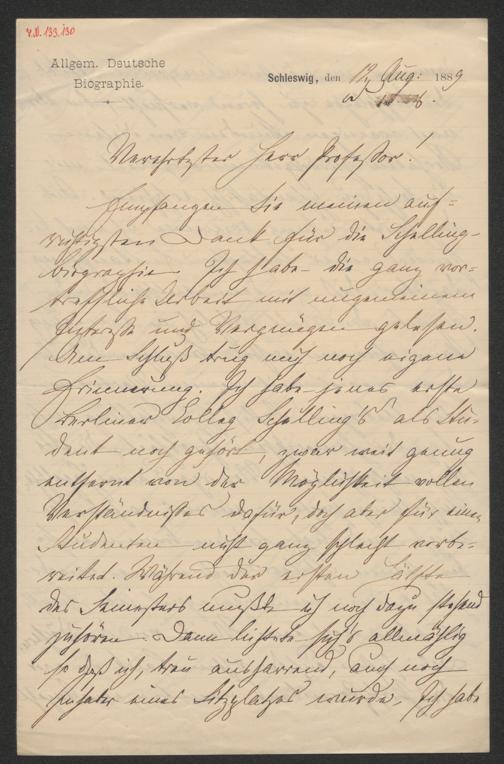 4.N.133.130
Allgem. Deutsche
Biographie.
Schleswig, den 12/ Aug. 1889
Verehrtester Herr Professor!
Empfangen Sie meinen auf=
richtigsten Dank für die Schelling-
biographie. Ich habe die ganz vor-
treffliche Arbeit mit ungemeinem
Interesse und Vergnügen gelesen.
Am Schluß trug mich noch eigene
Erinnerung. Ich habe jenes erste
Berliner Colleg Schelling's als Stu-
dent noch gehört, zwar weit genug
entfernt von der Möglichkeit vollen
Verständnisses dafür, doch aber für einen
Studenten nicht ganz schlecht vorbe-
reitet. Während der ersten Hälfte
des Semesters mußte ich noch dazu stehend
zuhören. Dann lichtete sich's allmählig
so daß ich, treu ausharrend, auch noch
Inhaber eines Sitzplatzes wurde. Ich habe